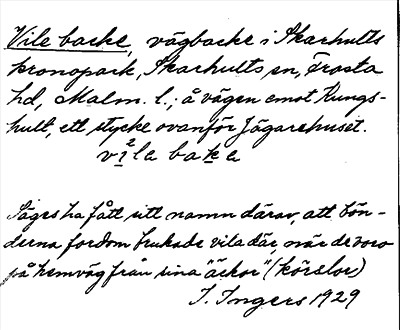 Vile backe, vägbacke i Skarhults
kronopark, Skarhults sn, Frosta
hd, Malm. l.; å vägen emot Kungs-
hult, ett stycke ovanför Jägarehuset.
vi²la bakə
Säges ha fått sitt namn därav, att bön-
derna fordom brukade vila där, när de voro
på hemväg från sina "äckor" (körslor)
I. Ingers 1929